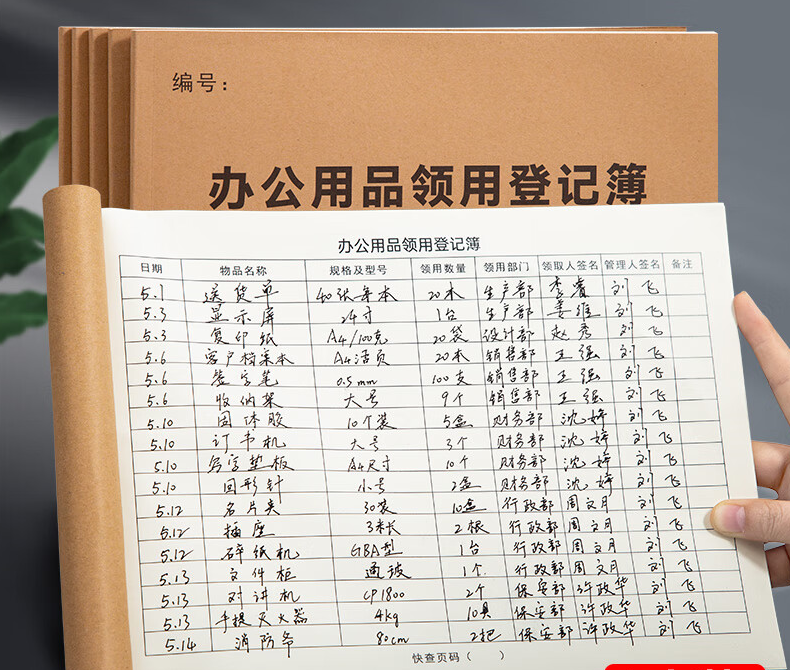 编号：
办公用品领用登记簿
办公用品领用登记簿
日期 物品名称 规格及型号 领用数量 领用部门 领取人签名 管理人签名 备注
5.1 送货单 40张每本 20本 生产部 李睿 刘飞
5.3 显示屏 24寸 1台 生产部 姜维 刘飞
5.3 复印纸 A4/100克 20袋 设计部 赵秀 刘飞
5.6 客户档案本 A4活页 20本 销售部 王强 刘飞
5.6 签字笔 0.5mm 100支 销售部 王强 刘飞
5.6 收纳架 大号 9个 销售部 王强 刘飞
5.10 固体胶 10个装 5盒 财务部 沈婷 刘飞
5.10 订书机 大号 3个 财务部 沈婷 刘飞
5.10 写字垫板 A4尺寸 10个 财务部 沈婷 刘飞
5.10 回形针 小号 2盒 财务部 沈婷 刘飞
5.12 名片夹 30装 10盒 行政部 周文月 刘飞
5.12 插座 3米长 2根 行政部 周文月 刘飞
5.12 碎纸机 GBA型 1台 行政部 周文月 刘飞
5.13 文件柜 通玻 1个 行政部 周文月 刘飞
5.13 对讲机 CP1800 2个 保安部 许政华 刘飞
5.13 手提灭火器 4kg 10具 保安部 许政华 刘飞
5.14 消防斧 80cm 2把 保安部 许政华 刘飞
快查页码（ ）